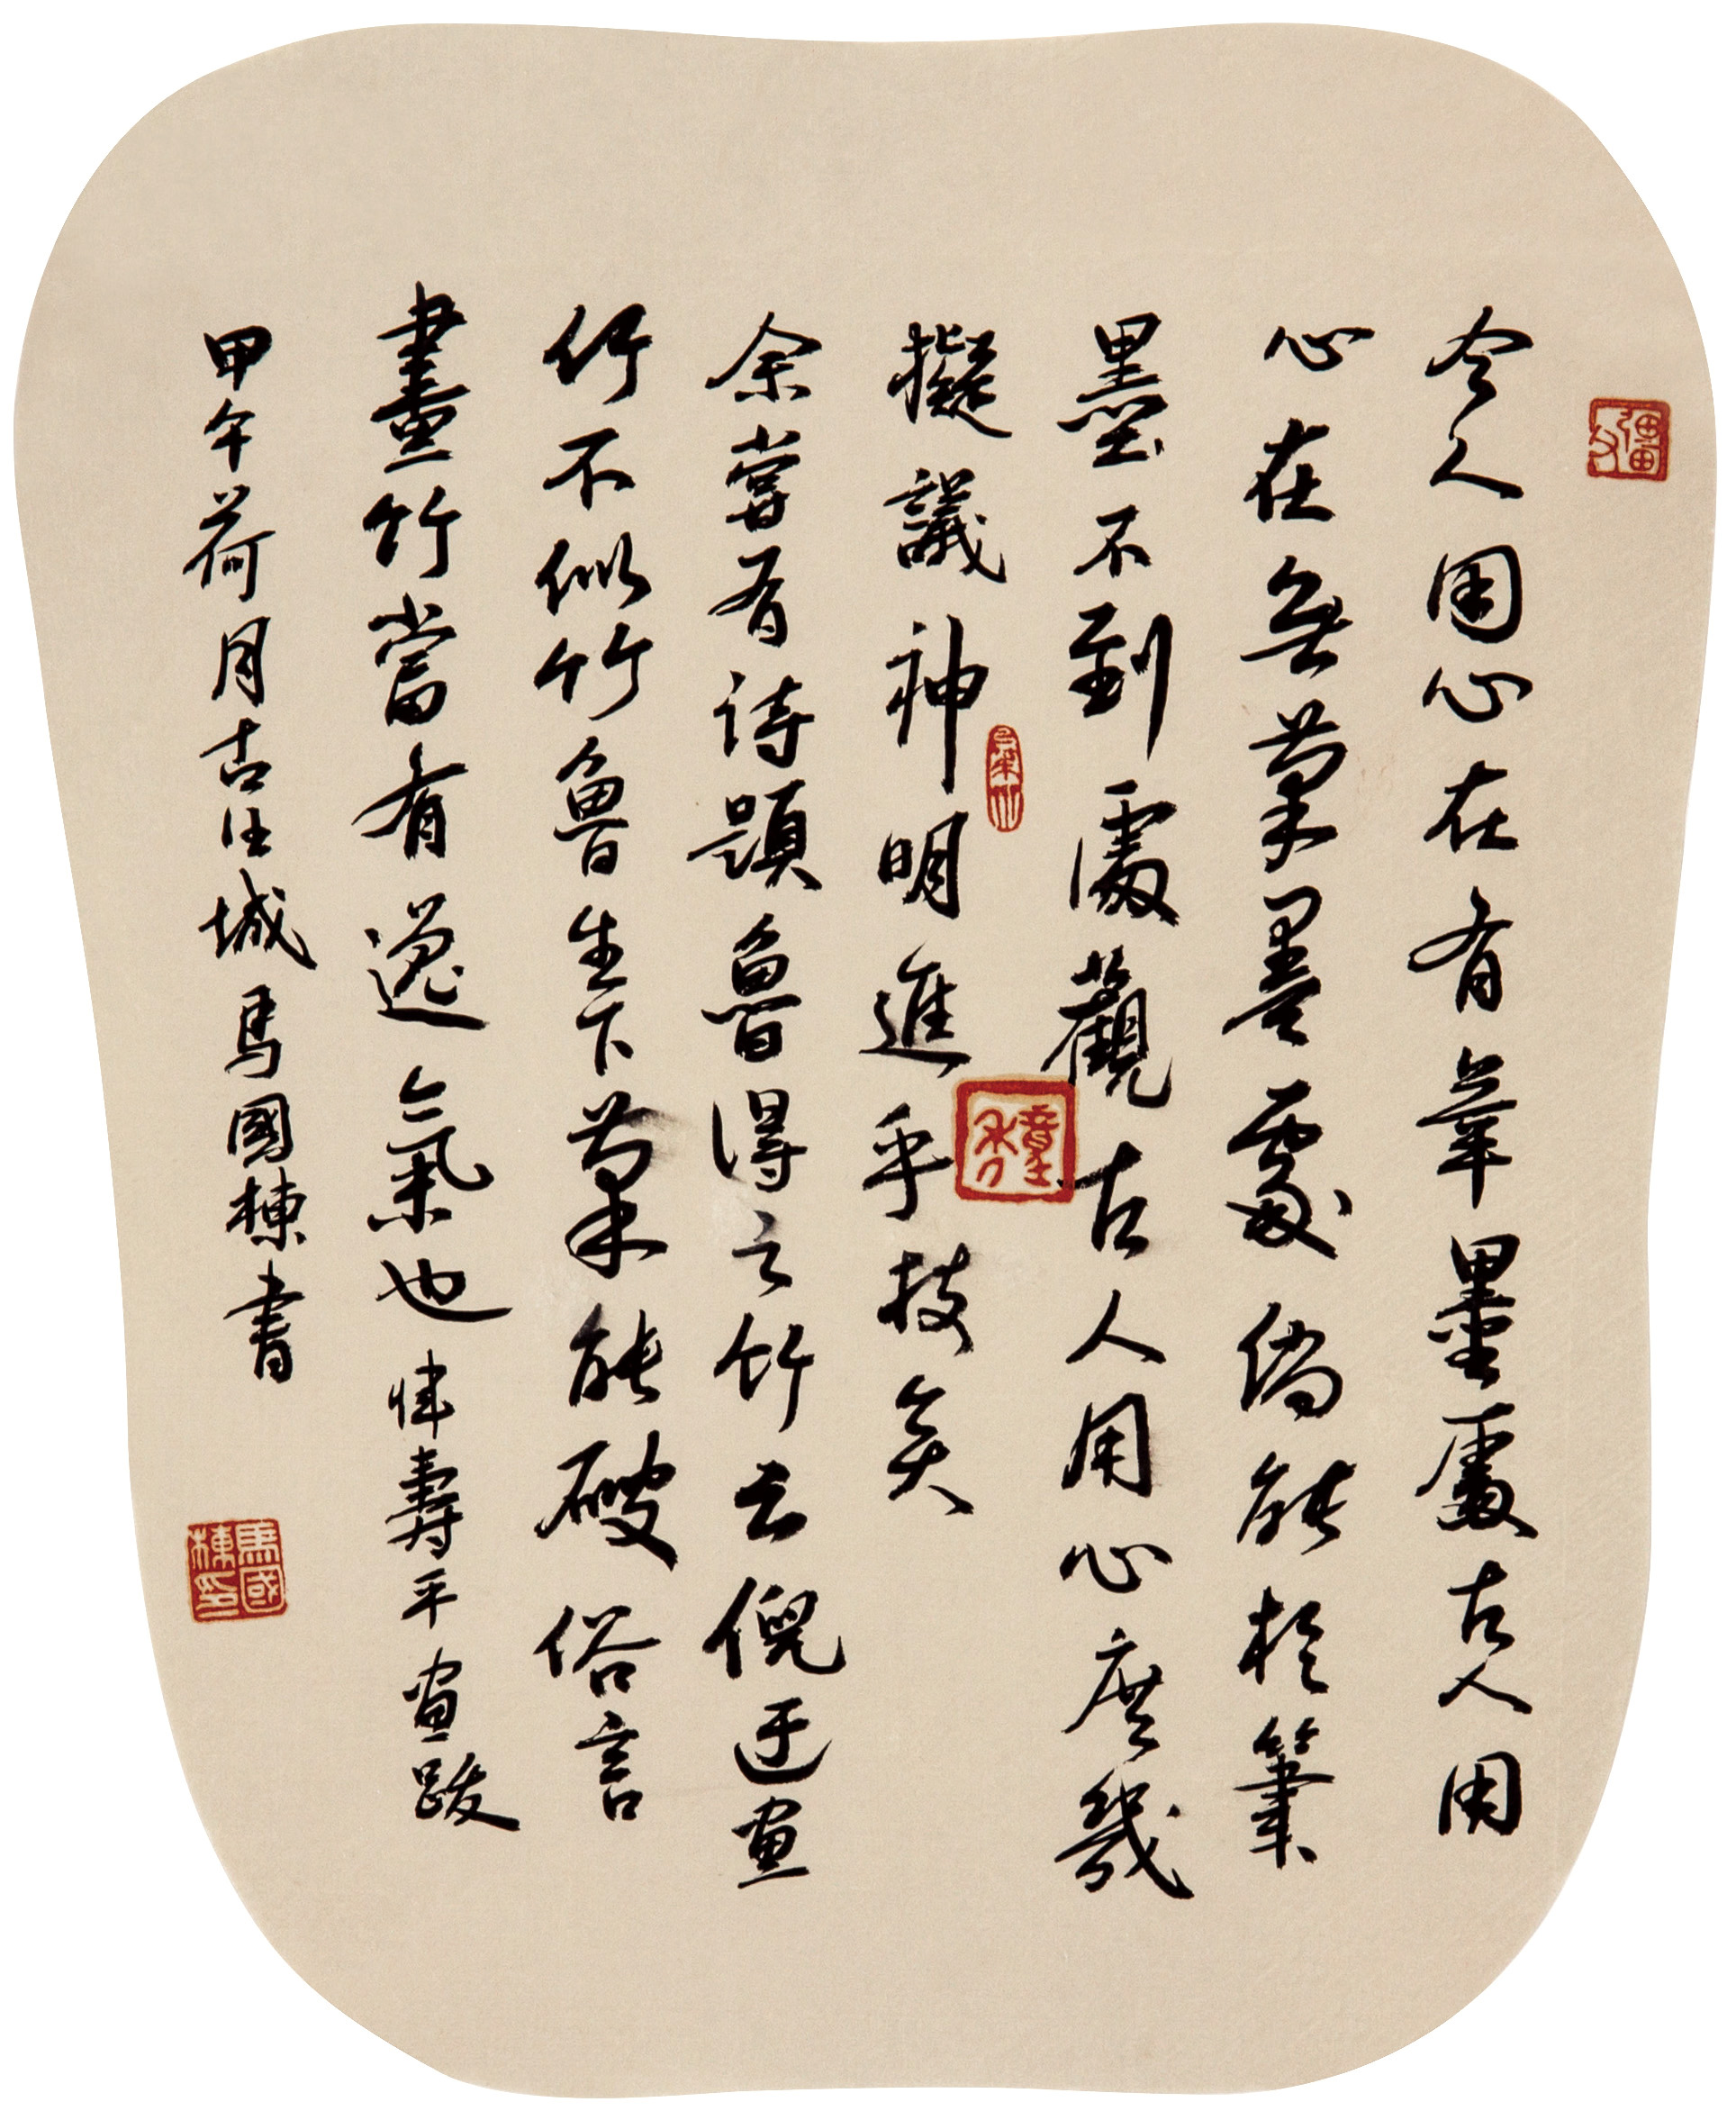 今人用心在有筆墨處古人用
心在無筆墨處倘能於筆
墨不到處觀古人用心庶幾
擬議神明進乎技矣
余嘗有詩題魯得之竹云倪迂畫
竹不似竹魯生下筆能破俗言
畫竹當有逸氣也惲壽平畫跋
甲午荷月古任城馬國棟書
馬國棟印